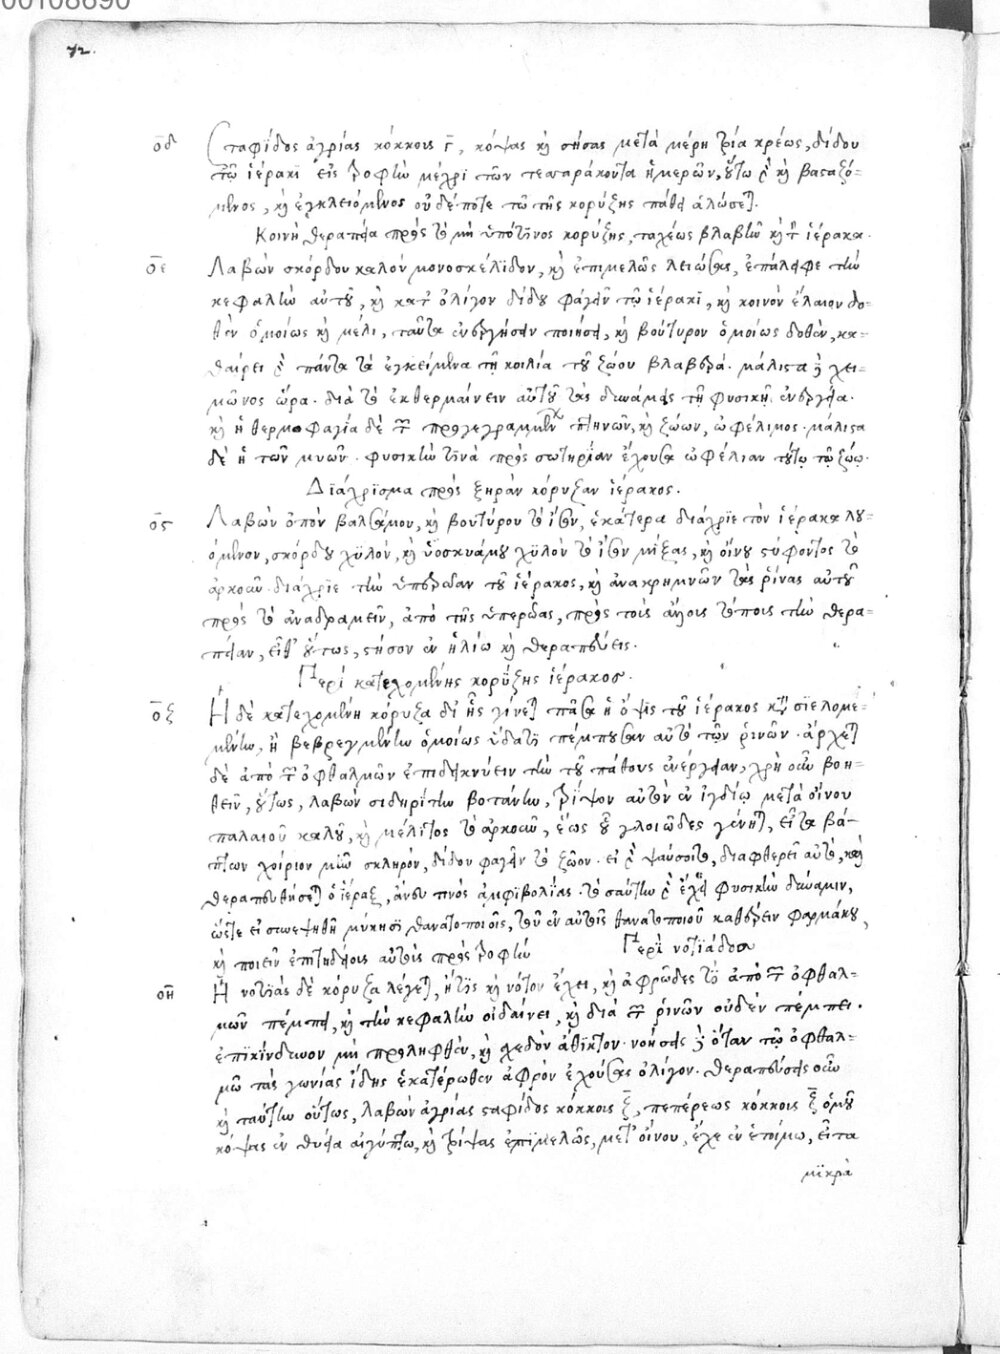 00108690
72.
οδ Σταφίδος ἀγρίας κόκκους γ, κόψας κ σήσας μετὰ μέρη τρία κρέως, δίδου
τῷ ἱέρακι εἰς τροφὴν μέχρι τῶν τεσσαράκοντα ἡμερῶν, οὕτω γ κ βασαζό-
μενος, κ ἐγκλειόμενος οὐδέποτε τῷ τῆς κορύζης πάθει ἁλώσεται.
Κοινὴ θεραπεία πρὸς τὸ μὴ ὑπό τινος κορύζης, ταχέως βλαβῆναι τ ἱέρακα.
οε Λαβὼν σκόρδου καλὸν μονοσκέλιδον, κ ἐπιμελῶς λειώσας, ἐπάλειφε τὴν
κεφαλὴν αὐτοῦ, κ κατ ὀλίγον δίδου φαγεῖν τῷ ἱέρακι, κ κοινὸν ἔλαιον δο-
θὲν ὁμοίως κ μέλι, ταῦτα ἐνεργῆσαν ποιήσει, κ βούτυρον ὁμοίως δοθὲν, κα-
θαίρει γ πάντα τὰ ἐγκείμενα τῇ κοιλία τοῦ ζώου βλαβερά. μάλιστα δ χει-
μῶνος ὥρα. διὰ τὸ ἐκθερμαίνειν αὐτοῦ τὰς δυνάμεις τῇ φυσικῇ ἐνεργείᾳ.
κ ἡ θερμοφαγία δὲ τ προγεγραμμένων πτηνῶν, κ ζώων, ὠφέλιμος. μάλιστα
δὲ ἡ τῶν μυῶν. φυσικὴν τινὰ πρὸς σωτηρίαν ἔχουσα ὠφέλιαν τούτῳ τῷ ζώῳ.
Διάχρισμα πρὸς ξηρὰν κόρυζαν ἱέρακος.
ος Λαβὼν ὀπὸν βαλσάμου, κ βουτύρου τὸ ἴσον, ἑκάτερα διάχριε τὸν ἱέρακα λυ-
όμενον, σκόρδου χυλὸν, κ ὑοσκυάμου χυλὸν τὸ ἴσον μίξας, κ οἴνου στύφοντος τὸ
ἀρκοῦν. διάχριε τὴν ὑπερώαν τοῦ ἱέρακος, κ ἀνακρημνῶν τὰς ῥίνας αὐτοῦ
πρὸς τὸ ἀναδραμεῖν, ἀπὸ τῆς ὑπερώας, πρὸς τοῖς ἄνοις τόποις τὴν θερα-
πείαν, εἶθ' οὕτως, στῆσον ἐν ἡλίῳ κ θεραπεύεις.
Περὶ κατεχομένης κορύζης ἱέρακος.
οζ Ἡ δὲ κατεχομένη κόρυζα δι' ἧς γίνεται πᾶσα ἡ ὄψις τοῦ ἱέρακος κ σιελομε-
μένην, ἢ βεβρεγμένην ὁμοίως ὕδατι πέμπουσαν αὐτὸ τῶν ῥινῶν. ἄρχεται
δὲ ἀπὸ τ ὀφθαλμῶν ἐπιδεικνύειν τὴν τοῦ πάθους ἐνέργειαν, χρὴ οὖν βοη-
θεῖν, οὕτως, λαβὼν σιδηρίτην βοτάνην, τρίψον αὐτὴν ἐν ἰγδίῳ μετὰ οἴνου
παλαιοῦ καλοῦ, κ μέλιτος τὸ ἀρκοῦν, ἕως οὗ γλοιῶδες γένηται, εἶτα βά-
πτων χοίριον μὴ σκληρὸν, δίδου φαγεῖν τὸ ζῶον. εἰ γ ψαύσοιτο, διαφθερεῖ αὐτὸ, καὶ
θεραπευθήσεται ὁ ἱέραξ, ἄνευ τινὸς ἀμφιβολίας τὸ γ ἔχει φυσικὴν δύναμιν,
ὥστε εἰ συνεψηθῇ μύκησι θανατοποιοῖς, τὸν ἐν αὐτοῖς θανατοποιοῦ καθαίρειν φαρμάκου,
κ ποιεῖν ἐπιτηδείοις αὐτοὺς πρὸς τροφὴν Περὶ νοτιάδος
οη Ἡ νοτιὰς δὲ κόρυζα λέγεται, ἥτις κ νότον ἔχει, κ ἀφρῶδες τι ἀπὸ τ ὀφθαλ-
μῶν πέμπει, κ τὴν κεφαλὴν οἰδαίνει, κ διὰ τ ῥινῶν οὐδὲν πέμπει.
ἐπικίνδυνον μὴ προληφθὲν, κ σχεδὸν ἄθικτον. νοήσεις δ ὅταν τῷ ὀφθαλ-
μῷ τὰς γωνίας ἴδῃς ἑκατέρωθεν ἀφρὸν ἐχούσας ὀλίγον. θεραπεύσεις οὖν
κ ταύτην οὕτως, λαβὼν ἀγρίας σταφίδος κόκκους ξ, πεπέρεως κόκκους ξ ὁμοῦ
κόψας ἐν θυΐᾳ αἰγύπτῳ, κ τρίψας ἐπιμελῶς, μετ' οἴνου, ἔχε ἐν ἑτοίμῳ, εἶτα
μικρὰ